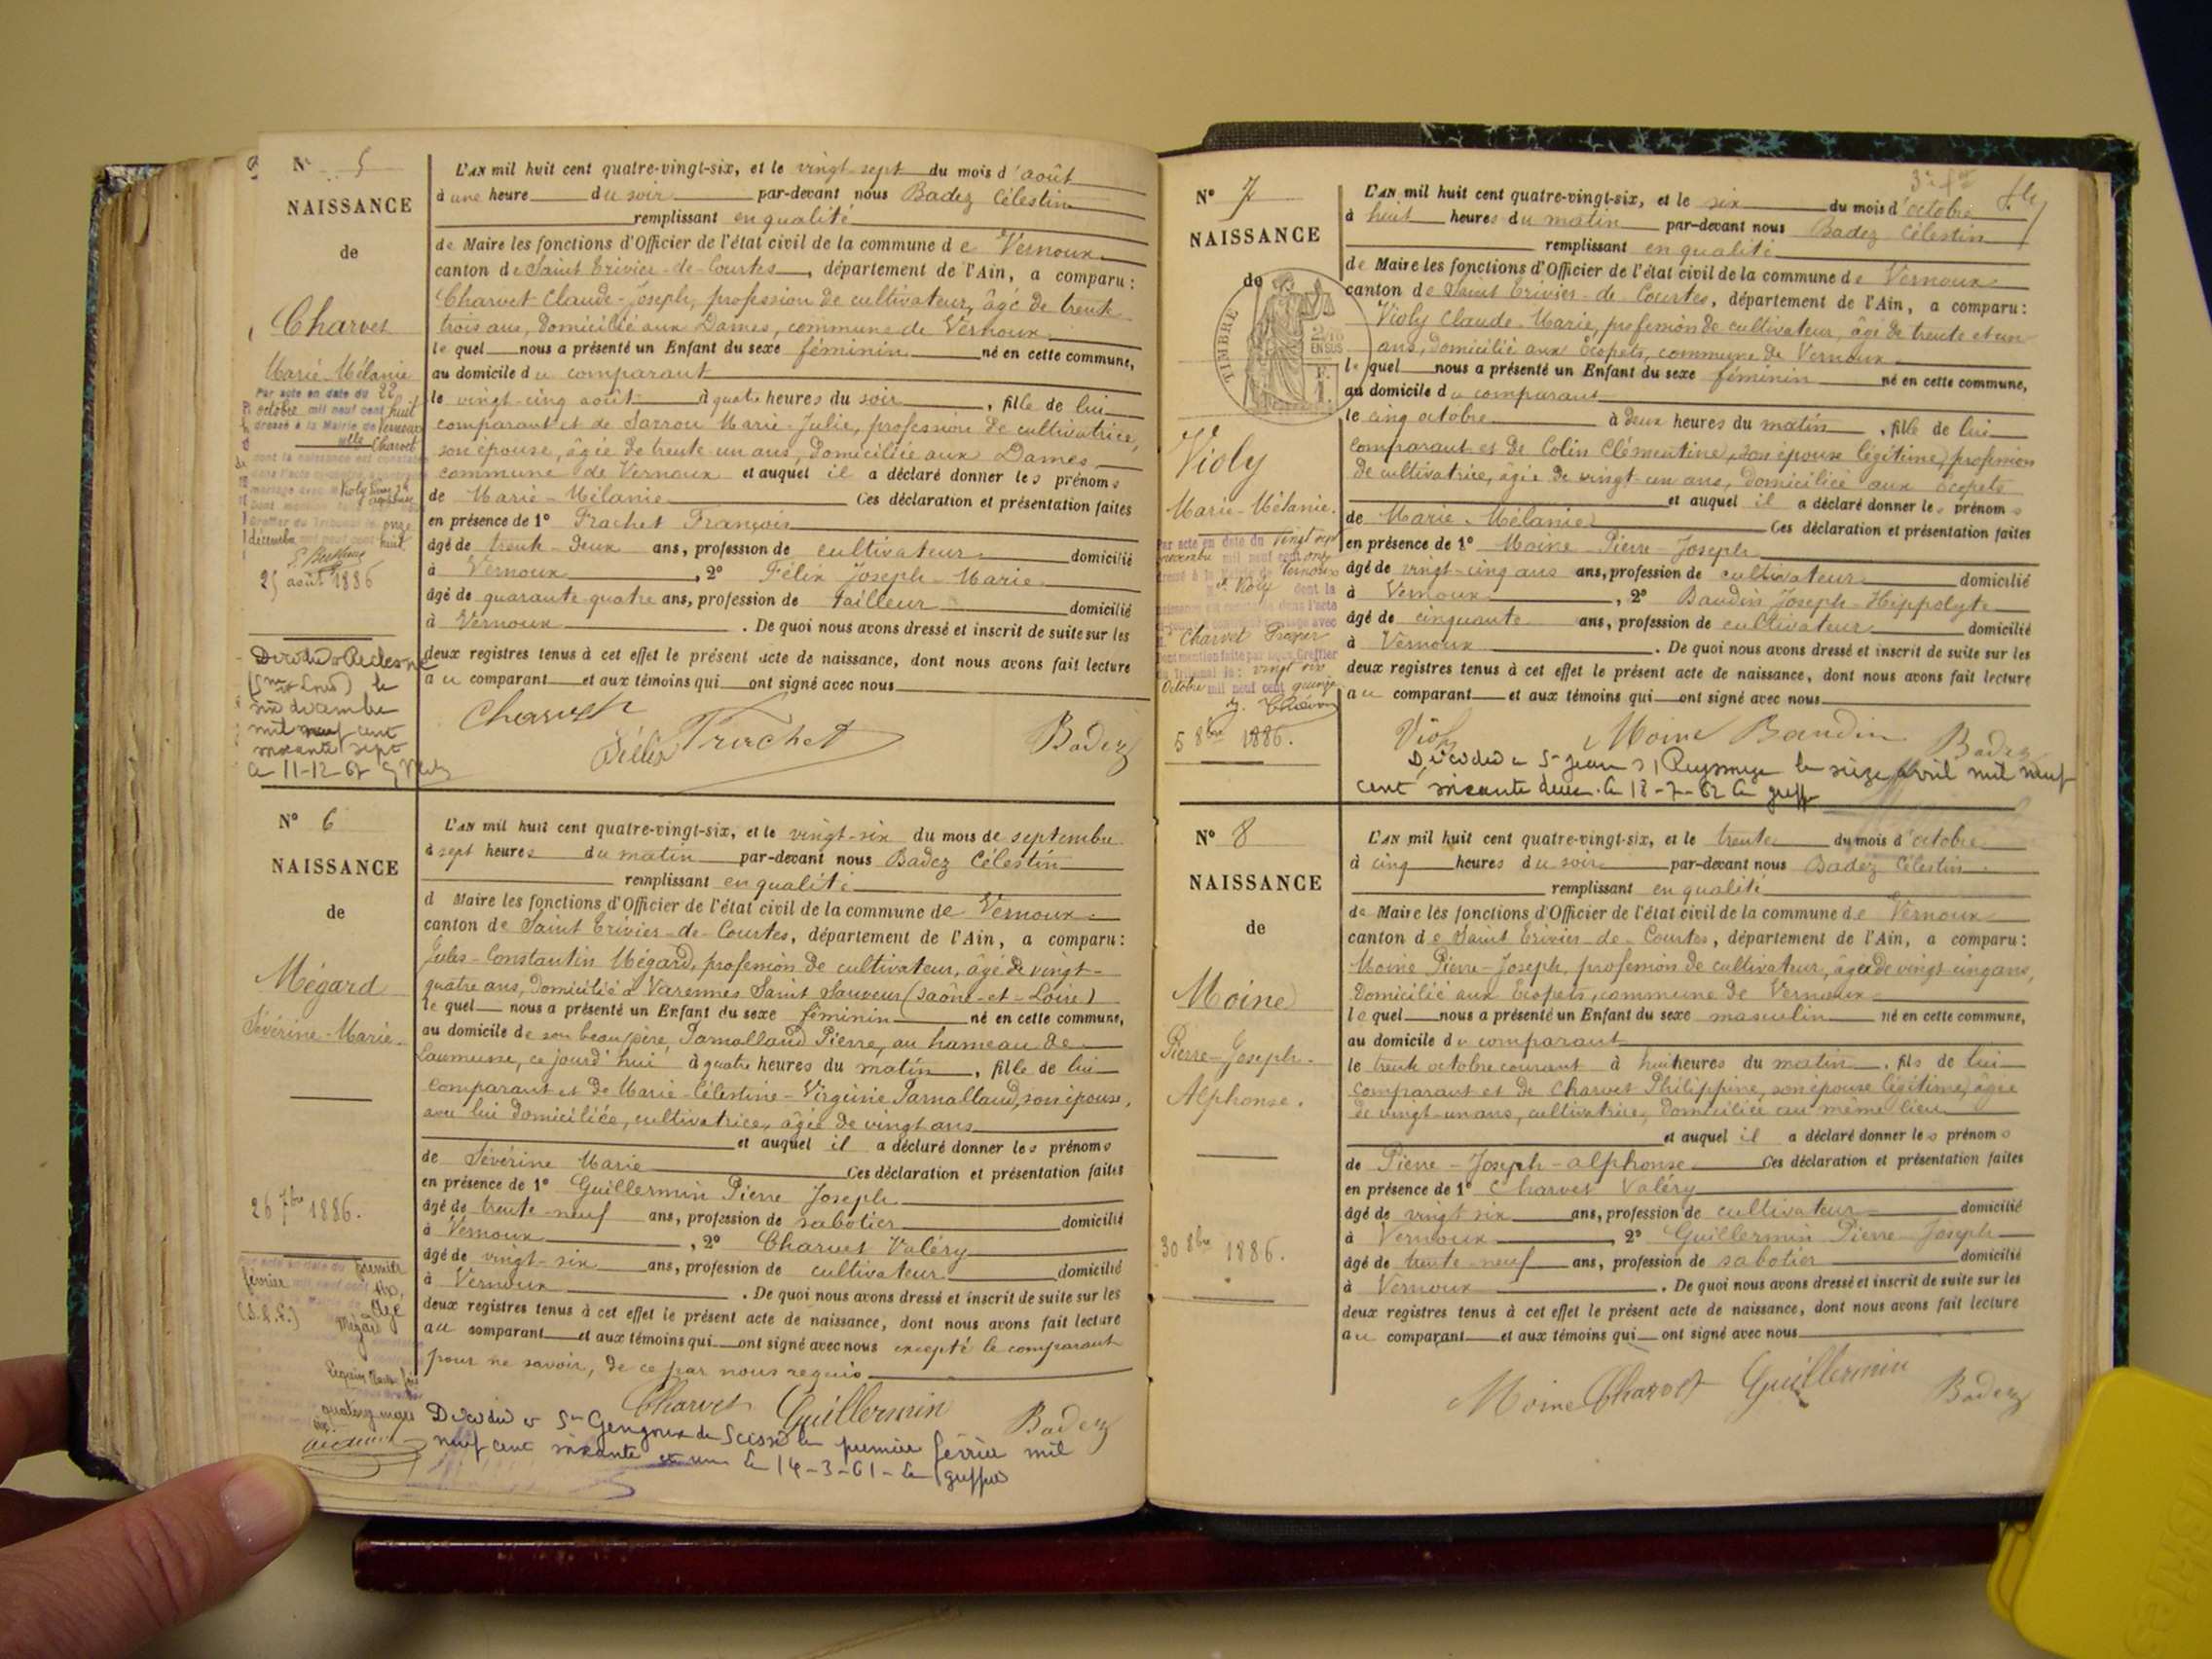 N° 5
NAISSANCE
de
Charvet
Marie-Mélanie
Par acte en date du 22
octobre mil neuf cent huit
dressé à la Mairie de Vernoux
Charvet
25 août 1886
Décédée
le
décembre
mil neuf cent
soixante sept
Le 11-12-67
L'AN mil huit cent quatre-vingt-six, et le vingt-sept du mois d'août
à une heure du soir par-devant nous Badez Célestin
remplissant en qualité
de Maire les fonctions d'Officier de l'état civil de la commune de Vernoux
canton de Saint Trivier-de-Courtes, département de l'Ain, a comparu:
Charvet Claude-Joseph, profession de cultivateur, âgé de trente
trois ans, domicilié aux Dames, commune de Vernoux
lequel nous a présenté un Enfant du sexe féminin né en cette commune,
au domicile du comparant
le vingt-cinq août à quatre heures du soir, fille de lui
comparant et de Sarrou Marie-Julie, profession de cultivatrice,
son épouse, âgée de trente un ans, domiciliée aux Dames
commune de Vernoux et auquel il a déclaré donner les prénoms
de Marie-Mélanie Ces déclaration et présentation faites
en présence de 1° Frachet François
âgé de trente-deux ans, profession de cultivateur domicilié
à Vernoux, 2° Félix Joseph-Marie
âgé de quarante quatre ans, profession de tailleur domicilié
à Vernoux. De quoi nous avons dressé et inscrit de suite sur les
deux registres tenus à cet effet le présent acte de naissance, dont nous avons fait lecture
au comparant et aux témoins qui ont signé avec nous
Charvet
Félix Frachet Badez
N° 6
NAISSANCE
de
Mégard
Sévérine-Marie.
26 7bre 1886.
premier
février
Mégard
L'AN mil huit cent quatre-vingt-six, et le vingt-six du mois de septembre
à sept heures du matin par-devant nous Badez Célestin
remplissant en qualité
d Maire les fonctions d'Officier de l'état civil de la commune de Vernoux
canton de Saint Trivier-de-Courtes, département de l'Ain, a comparu:
Jules-Constantin Mégard, profession de cultivateur, âgé de vingt-
quatre ans, domicilié à Varennes Saint Sauveur (Saône-et-Loire)
lequel nous a présenté un Enfant du sexe féminin né en cette commune,
au domicile de son beau-père, Pierre, au hameau de
ce jourd'hui à quatre heures du matin, fille de lui
comparant et de Marie-Célestine-Virginie son épouse,
avec lui domiciliée, cultivatrice, âgée de vingt ans
et auquel il a déclaré donner les prénoms
de Sévérine Marie Ces déclaration et présentation faites
en présence de 1° Guillermin Pierre Joseph
âgé de trente-neuf ans, profession de sabotier domicilié
à Vernoux, 2° Charvet Valéry
âgé de vingt-six ans, profession de cultivateur domicilié
à Vernoux. De quoi nous avons dressé et inscrit de suite sur les
deux registres tenus à cet effet le présent acte de naissance, dont nous avons fait lecture
au comparant et aux témoins qui ont signé avec nous excepté le comparant
pour ne savoir, de ce par nous requis
Charvet Guillermin Badez
Décédée à St Gengoux de Scissé le premier février mil
neuf cent soixante et un Le 14-3-61 - Le greffier
N° 7
NAISSANCE
de
TIMBRE
Violy
Marie-Mélanie.
Charvet Prosper
5 8bre 1886.
L'AN mil huit cent quatre-vingt-six, et le six du mois d'octobre
à huit heures du matin par-devant nous Badez Célestin
remplissant en qualité
de Maire les fonctions d'Officier de l'état civil de la commune de Vernoux
canton de Saint Trivier-de-Courtes, département de l'Ain, a comparu:
Violy Claude-Marie, profession de cultivateur, âgé de trente et un
ans, domicilié aux Ecopets, commune de Vernoux
lequel nous a présenté un Enfant du sexe féminin né en cette commune,
au domicile du comparant
le cinq octobre à deux heures du matin, fille de lui
comparant et de Colin Clémentine, son épouse légitime, profession
de cultivatrice, âgée de vingt un ans, domiciliée aux Ecopets
et auquel il a déclaré donner les prénoms
de Marie-Mélanie Ces déclaration et présentation faites
en présence de 1° Moine Pierre-Joseph
âgé de vingt-cinq ans ans, profession de cultivateur domicilié
à Vernoux, 2° Baudin Joseph-Hippolyte
âgé de cinquante ans, profession de cultivateur domicilié
à Vernoux. De quoi nous avons dressé et inscrit de suite sur les
deux registres tenus à cet effet le présent acte de naissance, dont nous avons fait lecture
au comparant et aux témoins qui ont signé avec nous
Violy Moine Baudin Badez
Décédée à St Jean s/ Reyssouze le seize avril mil neuf
cent soixante deux. Le 18-7-62 Le greff
N° 8
NAISSANCE
de
Moine
Pierre-Joseph-
Alphonse.
30 8bre 1886.
L'AN mil huit cent quatre-vingt-six, et le trente du mois d'octobre
à cinq heures du soir par-devant nous Badez Célestin
remplissant en qualité
de Maire les fonctions d'Officier de l'état civil de la commune de Vernoux
canton de Saint Trivier-de-Courtes, département de l'Ain, a comparu:
Moine Pierre-Joseph, profession de cultivateur, âgé de vingt cinq ans,
domicilié aux Ecopets, commune de Vernoux
lequel nous a présenté un Enfant du sexe masculin né en cette commune,
au domicile du comparant
le trente octobre courant à huit heures du matin, fils de lui
comparant et de Charvet Philippine, son épouse légitime, âgée
de vingt-un ans, cultivatrice, domiciliée au même lieu
et auquel il a déclaré donner les prénoms
de Pierre-Joseph-alphonse Ces déclaration et présentation faites
en présence de 1° Charvet Valéry
âgé de vingt six ans, profession de cultivateur domicilié
à Vernoux, 2° Guillermin Pierre Joseph
âgé de trente-neuf ans, profession de sabotier domicilié
à Vernoux. De quoi nous avons dressé et inscrit de suite sur les
deux registres tenus à cet effet le présent acte de naissance, dont nous avons fait lecture
au comparant et aux témoins qui ont signé avec nous
Moine Charvet Guillermin Badez